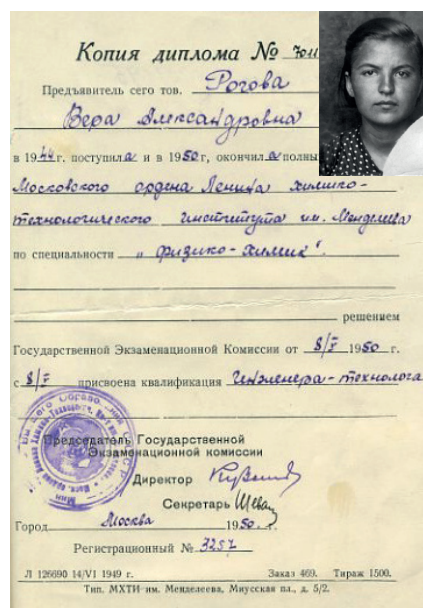 Копия диплома №
Предъявитель сего тов. Рогова
Вера Александровна
в 1944 г. поступила и в 1950 г. окончила полны
Московского ордена Ленина химико-
технологического института им. Менделеева
по специальности „физико-химик“.
решением
Государственной Экзаменационной Комиссии от 8/V 1950 г.
с 8/V присвоена квалификация Инженера-технолога
Председатель Государственной
Экзаменационной комиссии
Директор
Секретарь Шевац
Город Москва 1950 г.
Регистрационный № 3257
Л 126690 14/VI 1949 г. Заказ 469. Тираж 1500.
Тип. МХТИ им. Менделеева, Миусская пл., д. 5/2.